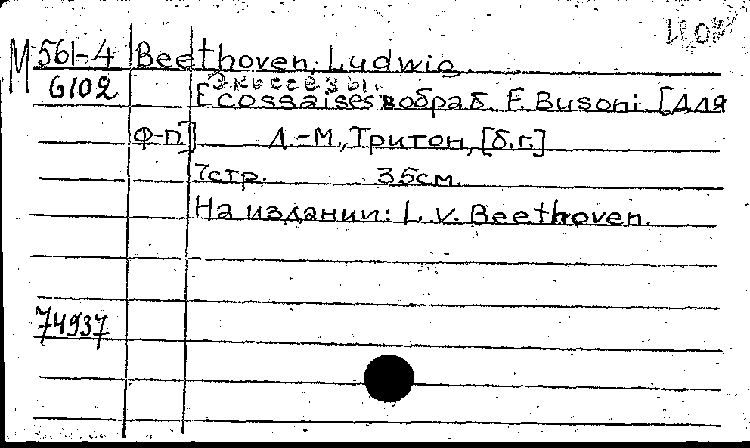 М 561-4 Beethoven, Ludwig
6102 Экоссезы.
Ecossaises в обраб. F. Busoni. [Для
ф-п.] Л.-М., Тритон, [б.г.]
7 стр. 35 см.
На издании: L. v. Beethoven.
74937